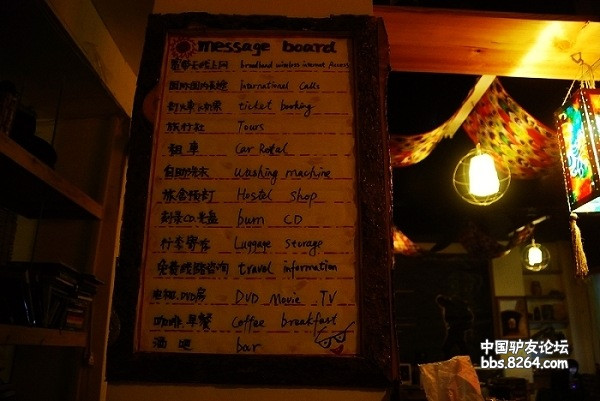 message board
宽带无线上网 broadland wireless internet Access
国际国内长途 International Calls
ticket booking
旅行社 Tours
租车 Car Retal
自助洗衣 Washing machine
旅舍预订 Hostel shop
刻录CD.光盘 burn CD
行李寄存 Luggage Storage
免费线路咨询 travel information
电视.DVD房 DVD Movie TV
咖啡.早餐 Coffee breakfast
酒吧 bar
中国驴友论坛
bbs.8264.com